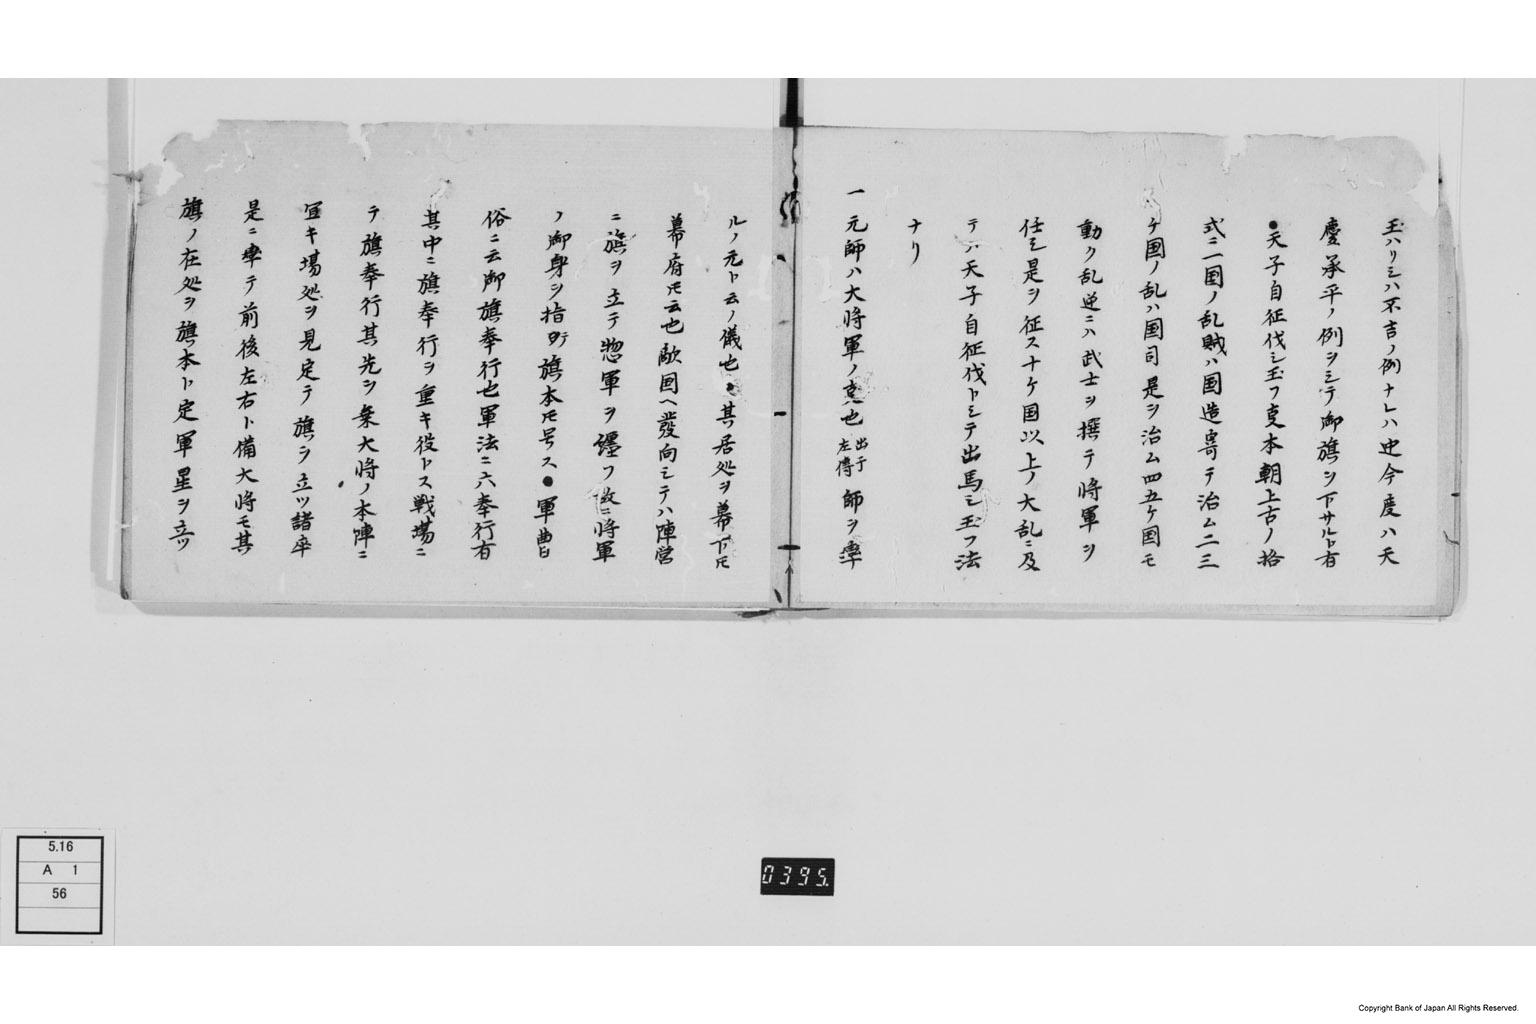 玉ハリシハ不吉ノ例ナレハ迚今度ハ天
慶承平ノ例ヲシテ御旗ヲ下サルト有
●天子自征伐シ玉フ㕝本朝上古ノ格
式ニ一国ノ乱賊ハ国造寄テ治ム二三
ケ国ノ乱ハ国司是ヲ治ム四五ケ国モ
動ク乱逆ニハ武士ヲ撰テ将軍ヲ
任シ是ヲ征ス十ケ国以上ノ大乱ニ及
テハ天子自征伐トシテ出馬シ玉フ法
ナリ
一元師ハ大将軍ノ㕝也出于左傳師ヲ率
ルノ元ト云ノ儀也●其居処ヲ幕下モ
幕府モ云也敵国ヘ發向シテハ陣営
ニ旗ヲ立テ惣軍ヲ纏フ故ニ将軍
ノ御身ヲ指テ旗本モ号ス●軍曲曰
俗ニ云御旗奉行也軍法ニ六奉行有
其中ニ旗奉行ヲ重キ役トス戦場ニ
テ旗奉行其先ヲ乗大将ノ本陣ニ
宜キ場処ヲ見定テ旗ヲ立ツ諸卒
是ニ率テ前後左右ト備大将モ其
旗ノ在処ヲ旗本ト定軍星ヲ立ツ
5.16
A 1
56
0395.
Copyright Bank of Japan All Rights Reserved.